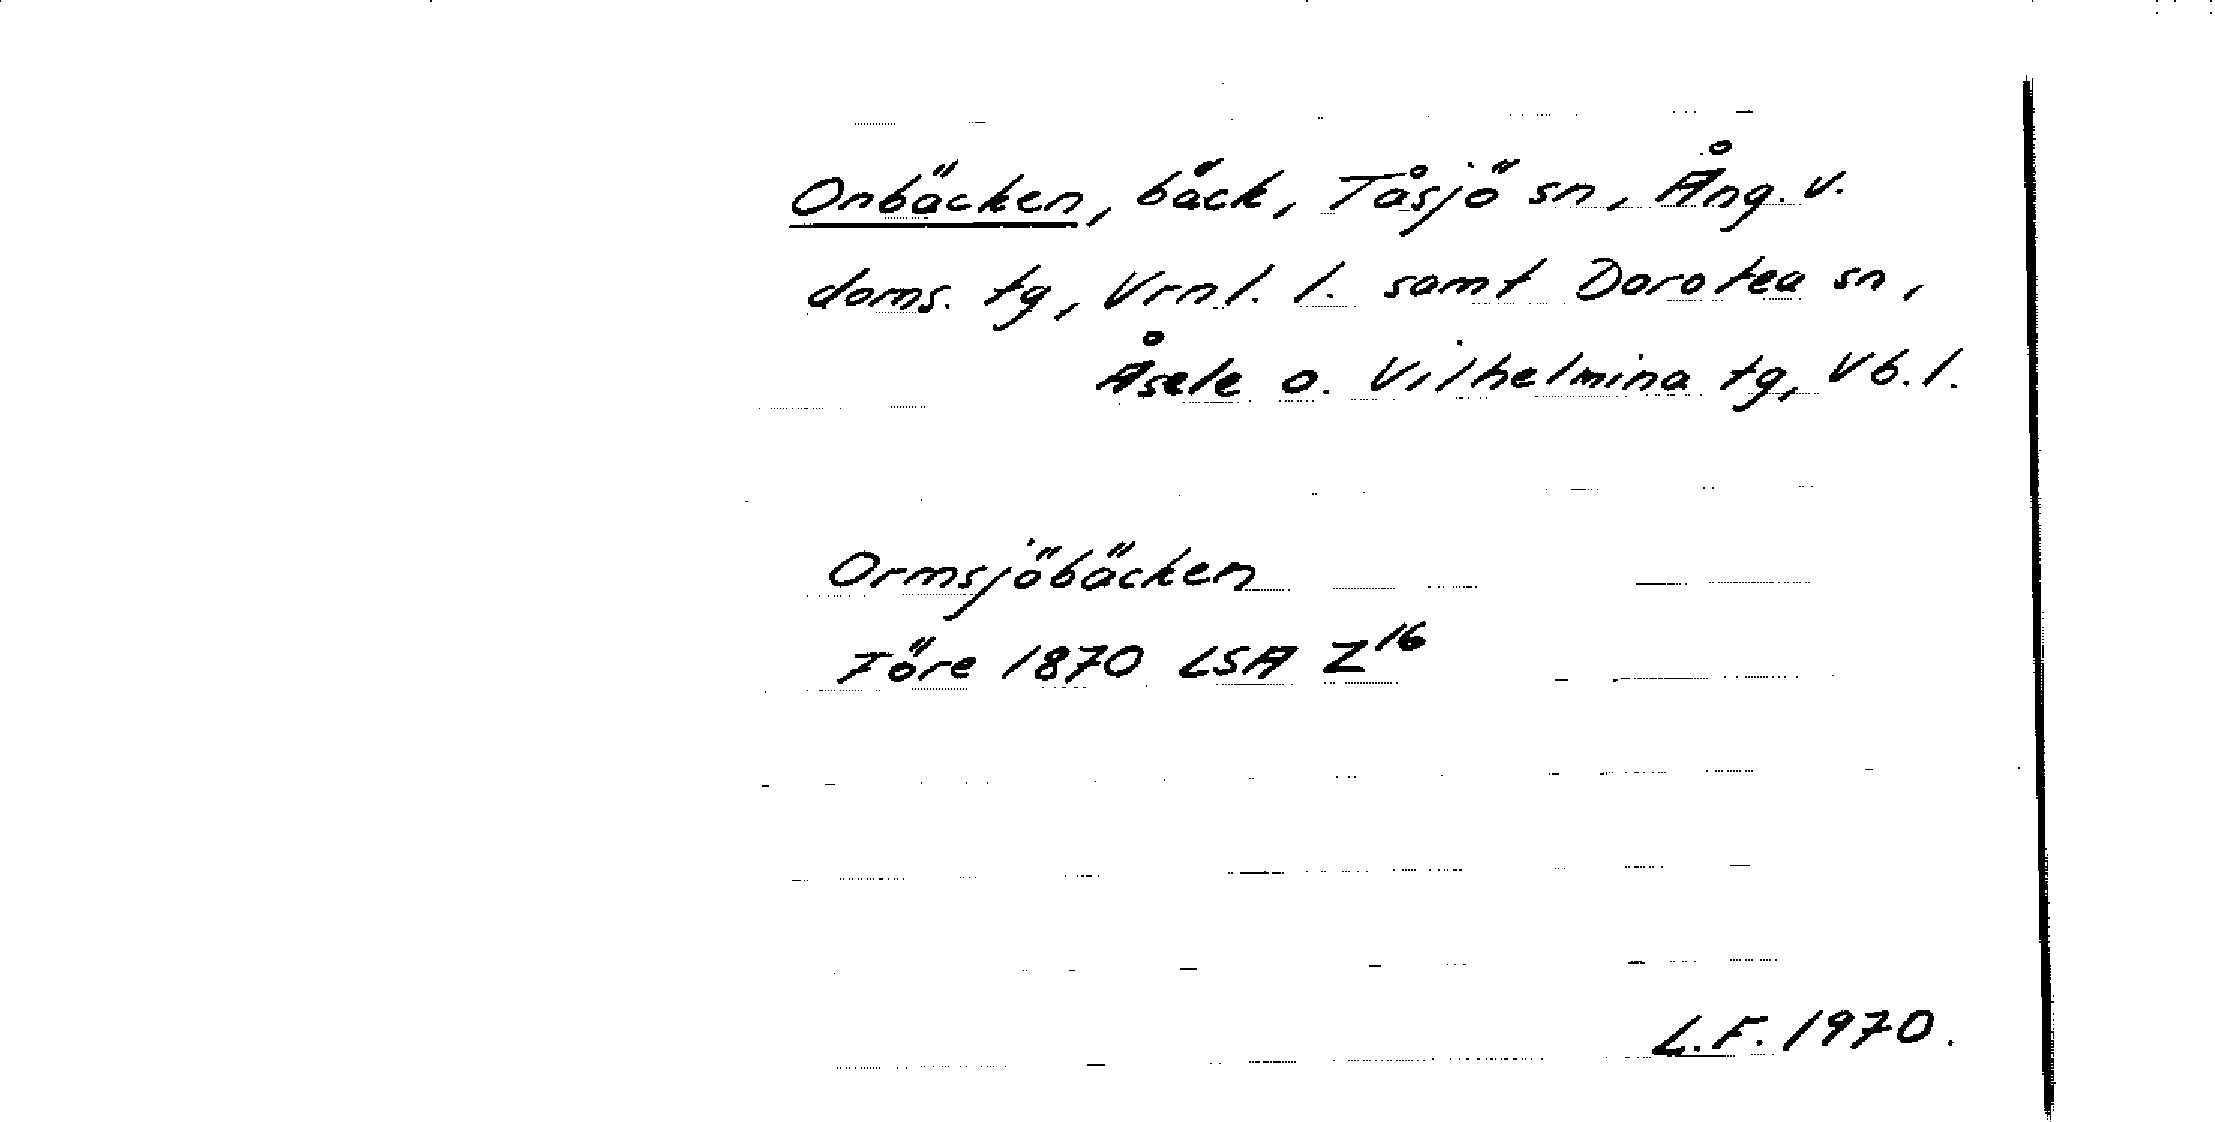 Onbäcken, bäck, Tåsjö sn, Ång. v.
doms. tg, Vrnl. l. samt Dorotea sn,
Åsele o. Vilhelmina tg, Vb. l.
Ormsjöbäcken
Före 1870 LSA Z16
L.F. 1970.